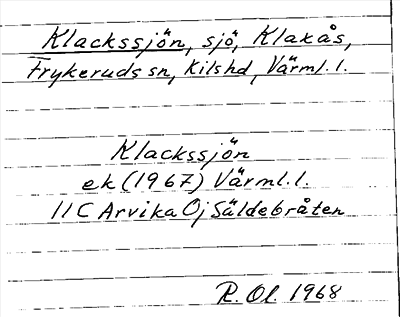 Klackssjön, sjö, Klakås,
Frykeruds sn, Kilshd, Värml. l.
Klackssjön
ek (1967) Värml. l.
11C Arvika Oj Säldebråten
R. Ol. 1968